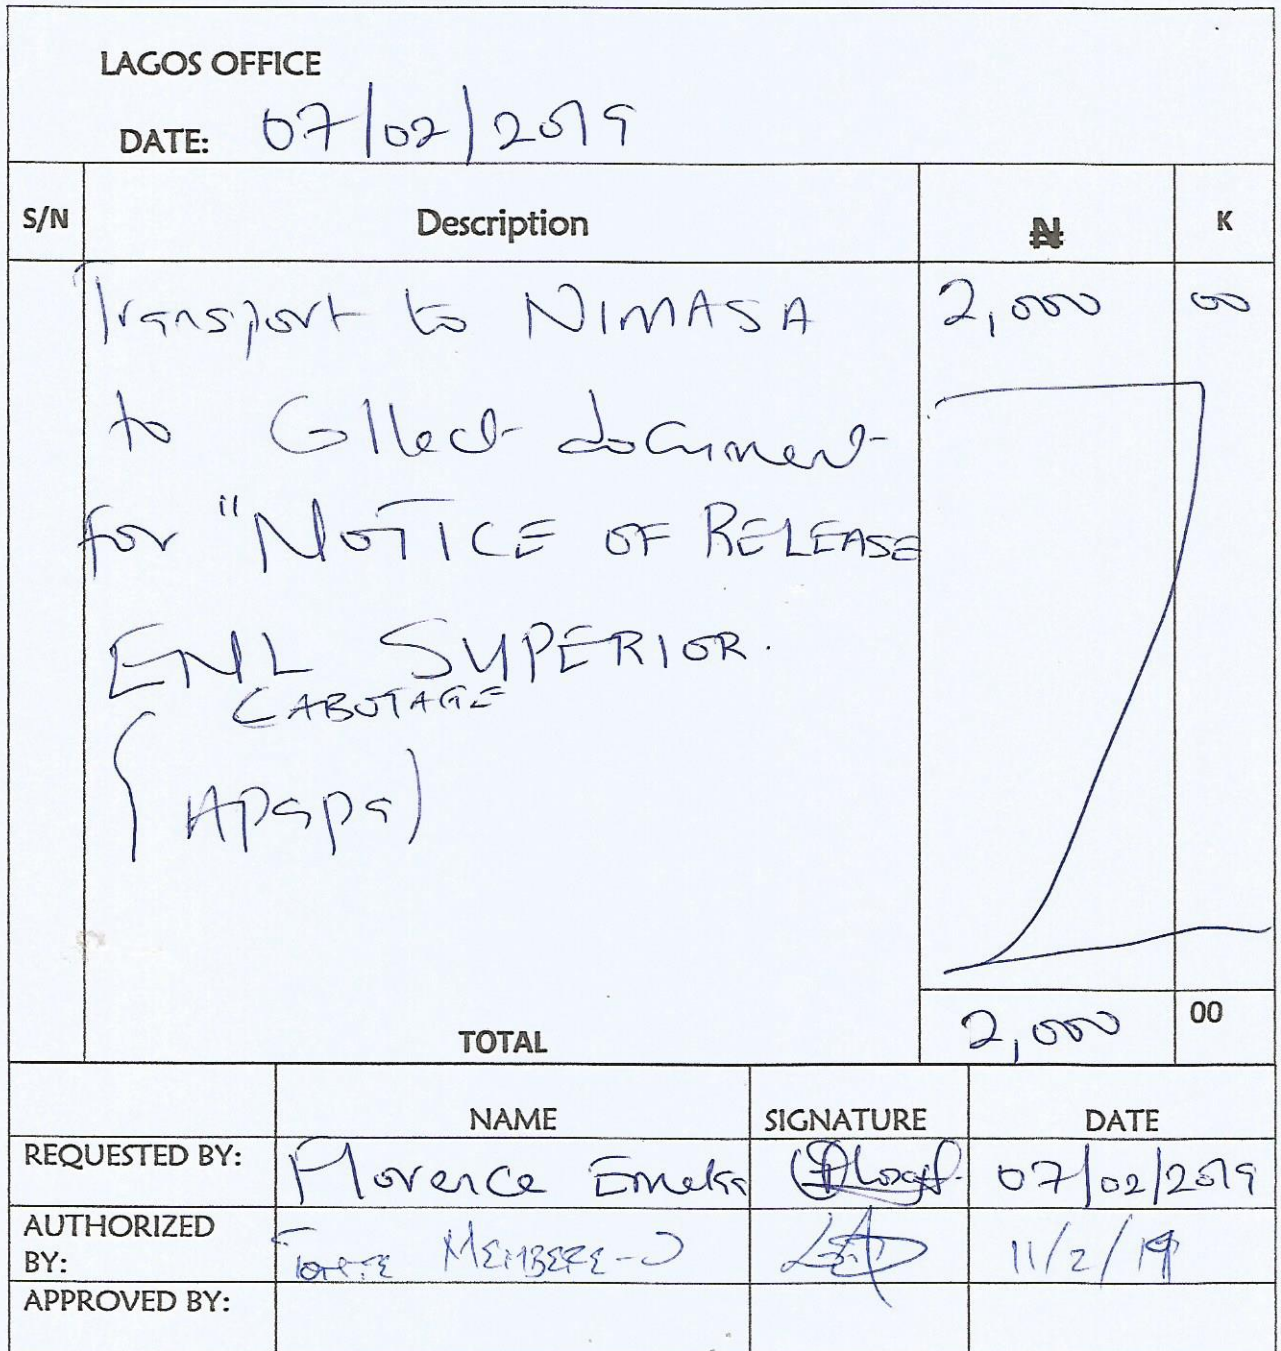 LAGOS OFFICE
DATE: 07/02/2019
S/N Description ₦ K
Transport to NIMASA 2,000 00
to Collect document
for "NOTICE OF RELEASE
ENL SUPERIOR.
CABOTAGE
(Apapa)
TOTAL 2,000 00
NAME SIGNATURE DATE
REQUESTED BY: Florence Emeka 07/02/2019
AUTHORIZED
BY: MEMBERE-O 11/2/19
APPROVED BY: